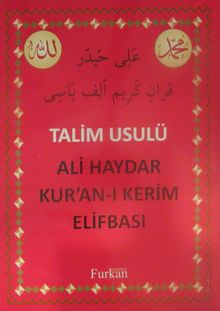 الله
محمد
علی حیدر
قرآن کریم الف باسی
TALİM USULÜ
ALİ HAYDAR
KUR'AN-I KERİM
ELİFBASI
Furkan